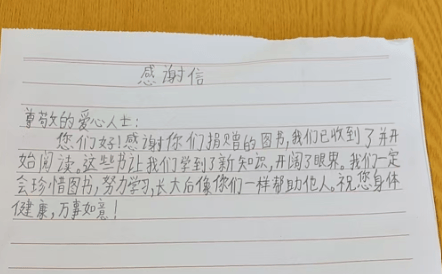 感谢信
尊敬的爱心人士:
您们好!感谢你们捐赠的图书,我们已收到了并开
始阅读。这些书让我们学到了新知识,开阔了眼界。我们一定
会珍惜图书,努力学习,长大后像你们一样帮助他人。祝您身体
健康,万事如意!